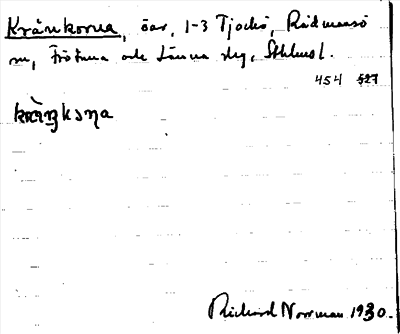 Kränkorna, öar, 1-3 Tjockö, Rådmansö
sn, Frötuna och Länna skg, Sthlms l.
454 527
kràŋksɳa
Richard Norrman 1930.